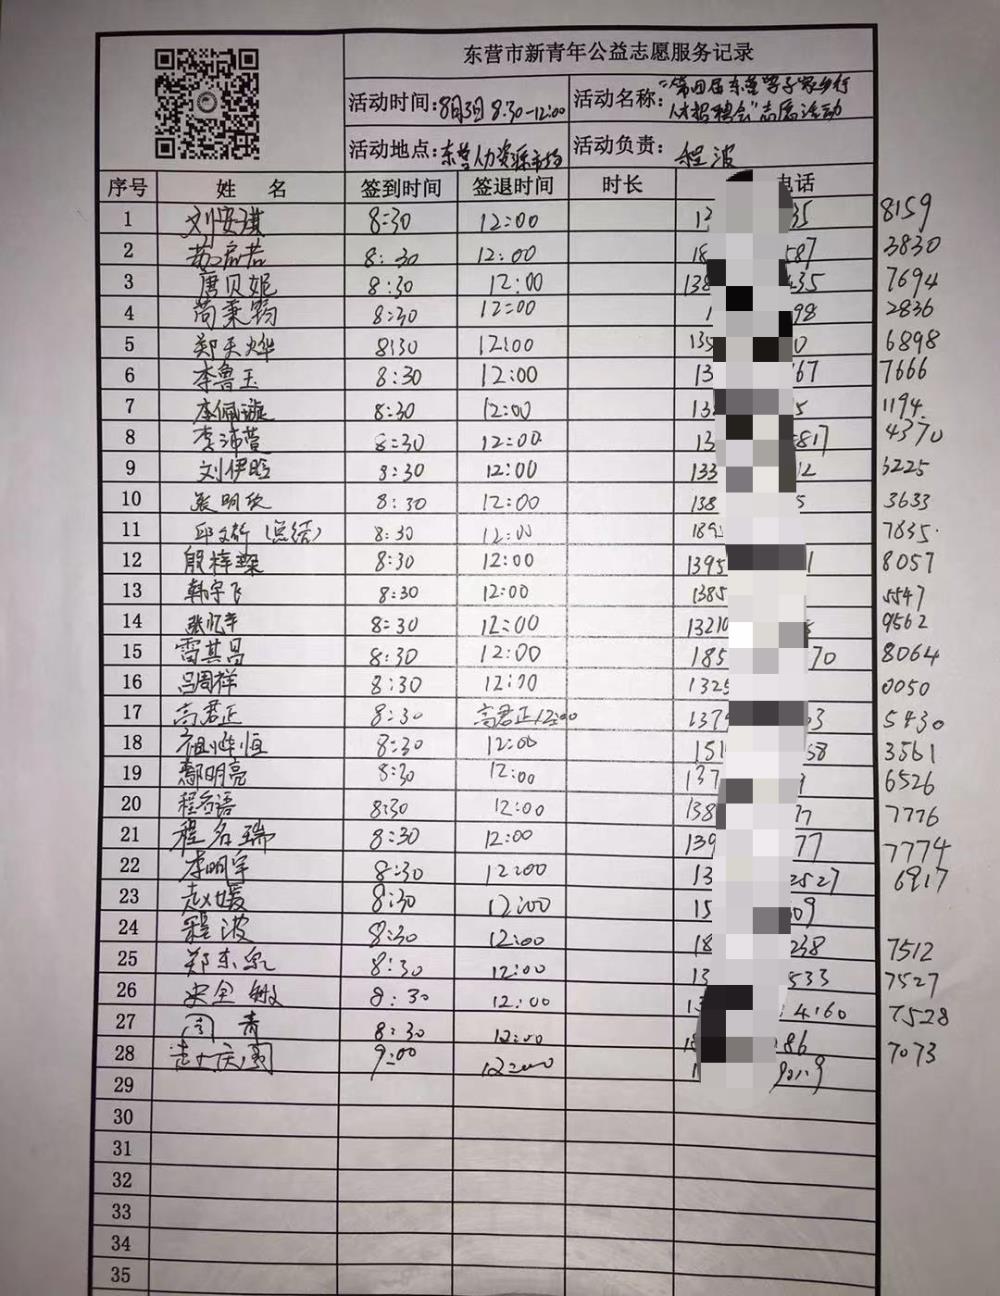 东营市新青年公益志愿服务记录
活动时间:8月3日 8:30-12:00 活动名称:"第四届东营学子家乡行
人才招聘会"志愿活动
活动地点:东营人力资源市场 活动负责: 程波
序号 姓 名 签到时间 签退时间 时长 电话
1 刘安琪 8:30 12:00 13 35 8159
2 8:30 12:00 18 587 3830
3 唐贝妮 8:30 12:00 138 435 7694
4 8:30 12:00 1 98 2836
5 郑天烨 8:30 12:00 135 0 6898
6 李鲁玉 8:30 12:00 13 67 7666
7 李佩璇 8:30 12:00 138 5 1194
8 李沛萱 8:30 12:00 13 5817 4370
9 刘伊晗 8:30 12:00 133 12 3225
10 张明欣 8:30 12:00 138 5 3633
11 邱文新(总结) 8:30 12:00 189 7635
12 殷梓琛 8:30 12:00 1395 1 8057
13 韩宇飞 8:30 12:00 1385 5547
14 张忆辛 8:30 12:00 13210 9562
15 雷其昌 8:30 12:00 185 70 8064
16 吕周祥 8:30 12:00 1325 0050
17 高君正 8:30 高君正12:00 137 03 5430
18 祖烨恒 8:30 12:00 151 58 3561
19 鄢明亮 8:30 12:00 137 9 6526
20 程名语 8:30 12:00 138 77 7776
21 程名瑞 8:30 12:00 139 777 7774
22 李明宇 8:30 12:00 13 2527 6917
23 赵媛 8:30 12:00 15 609
24 程波 8:30 12:00 18 238 7512
25 8:30 12:00 13 533 7527
26 8:30 12:00 13 4160 7528
27 周青 8:30 12:00 186 7073
28 9:00 12:00 1
29
30
31
32
33
34
35